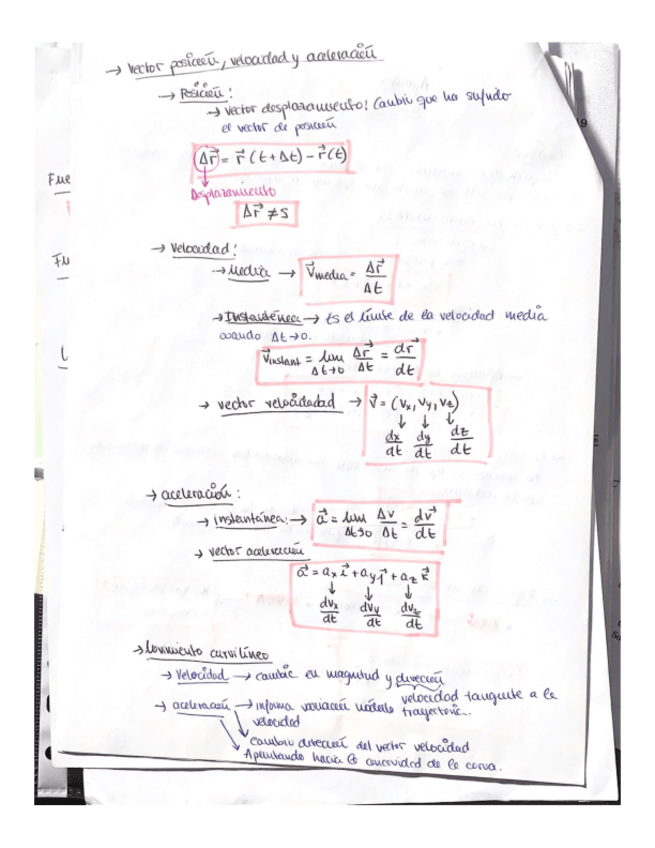 → Vector posición, velocidad y aceleración
→ Posición:
→ Vector desplazamiento: Cambio que ha sufrido
el vector de posición
Δr⃗ = r⃗ (t + Δt) − r⃗(t)
Fue
Desplazamiento
Δr⃗ ≠ s
→ Velocidad:
Fu
→ Media → V⃗media = Δr⃗ / Δt
→ Instantánea → Es el límite de la velocidad media
cuando Δt→0.
V⃗instant = lim Δt→0 Δr⃗/Δt = dr⃗/dt
→ vector velocidadad → v⃗ = (Vx, Vy, Vz)
↓ ↓ ↓
dx/dt dy/dt dz/dt
→ aceleración:
→ instantánea: → a⃗ = lim Δt→0 Δv/Δt = dv⃗/dt
→ vector aceleración
a⃗ = ax i⃗ + ay j⃗ + az k⃗
↓ ↓ ↓
dvx/dt dvy/dt dvz/dt
→ Movimiento curvilíneo
→ Velocidad → cambie en magnitud y dirección
velocidad tangente a la
trayectoria.
→ aceleración → informa variación módulo
velocidad
cambio dirección del vector velocidad
Apuntando hacia la concavidad de la curva.